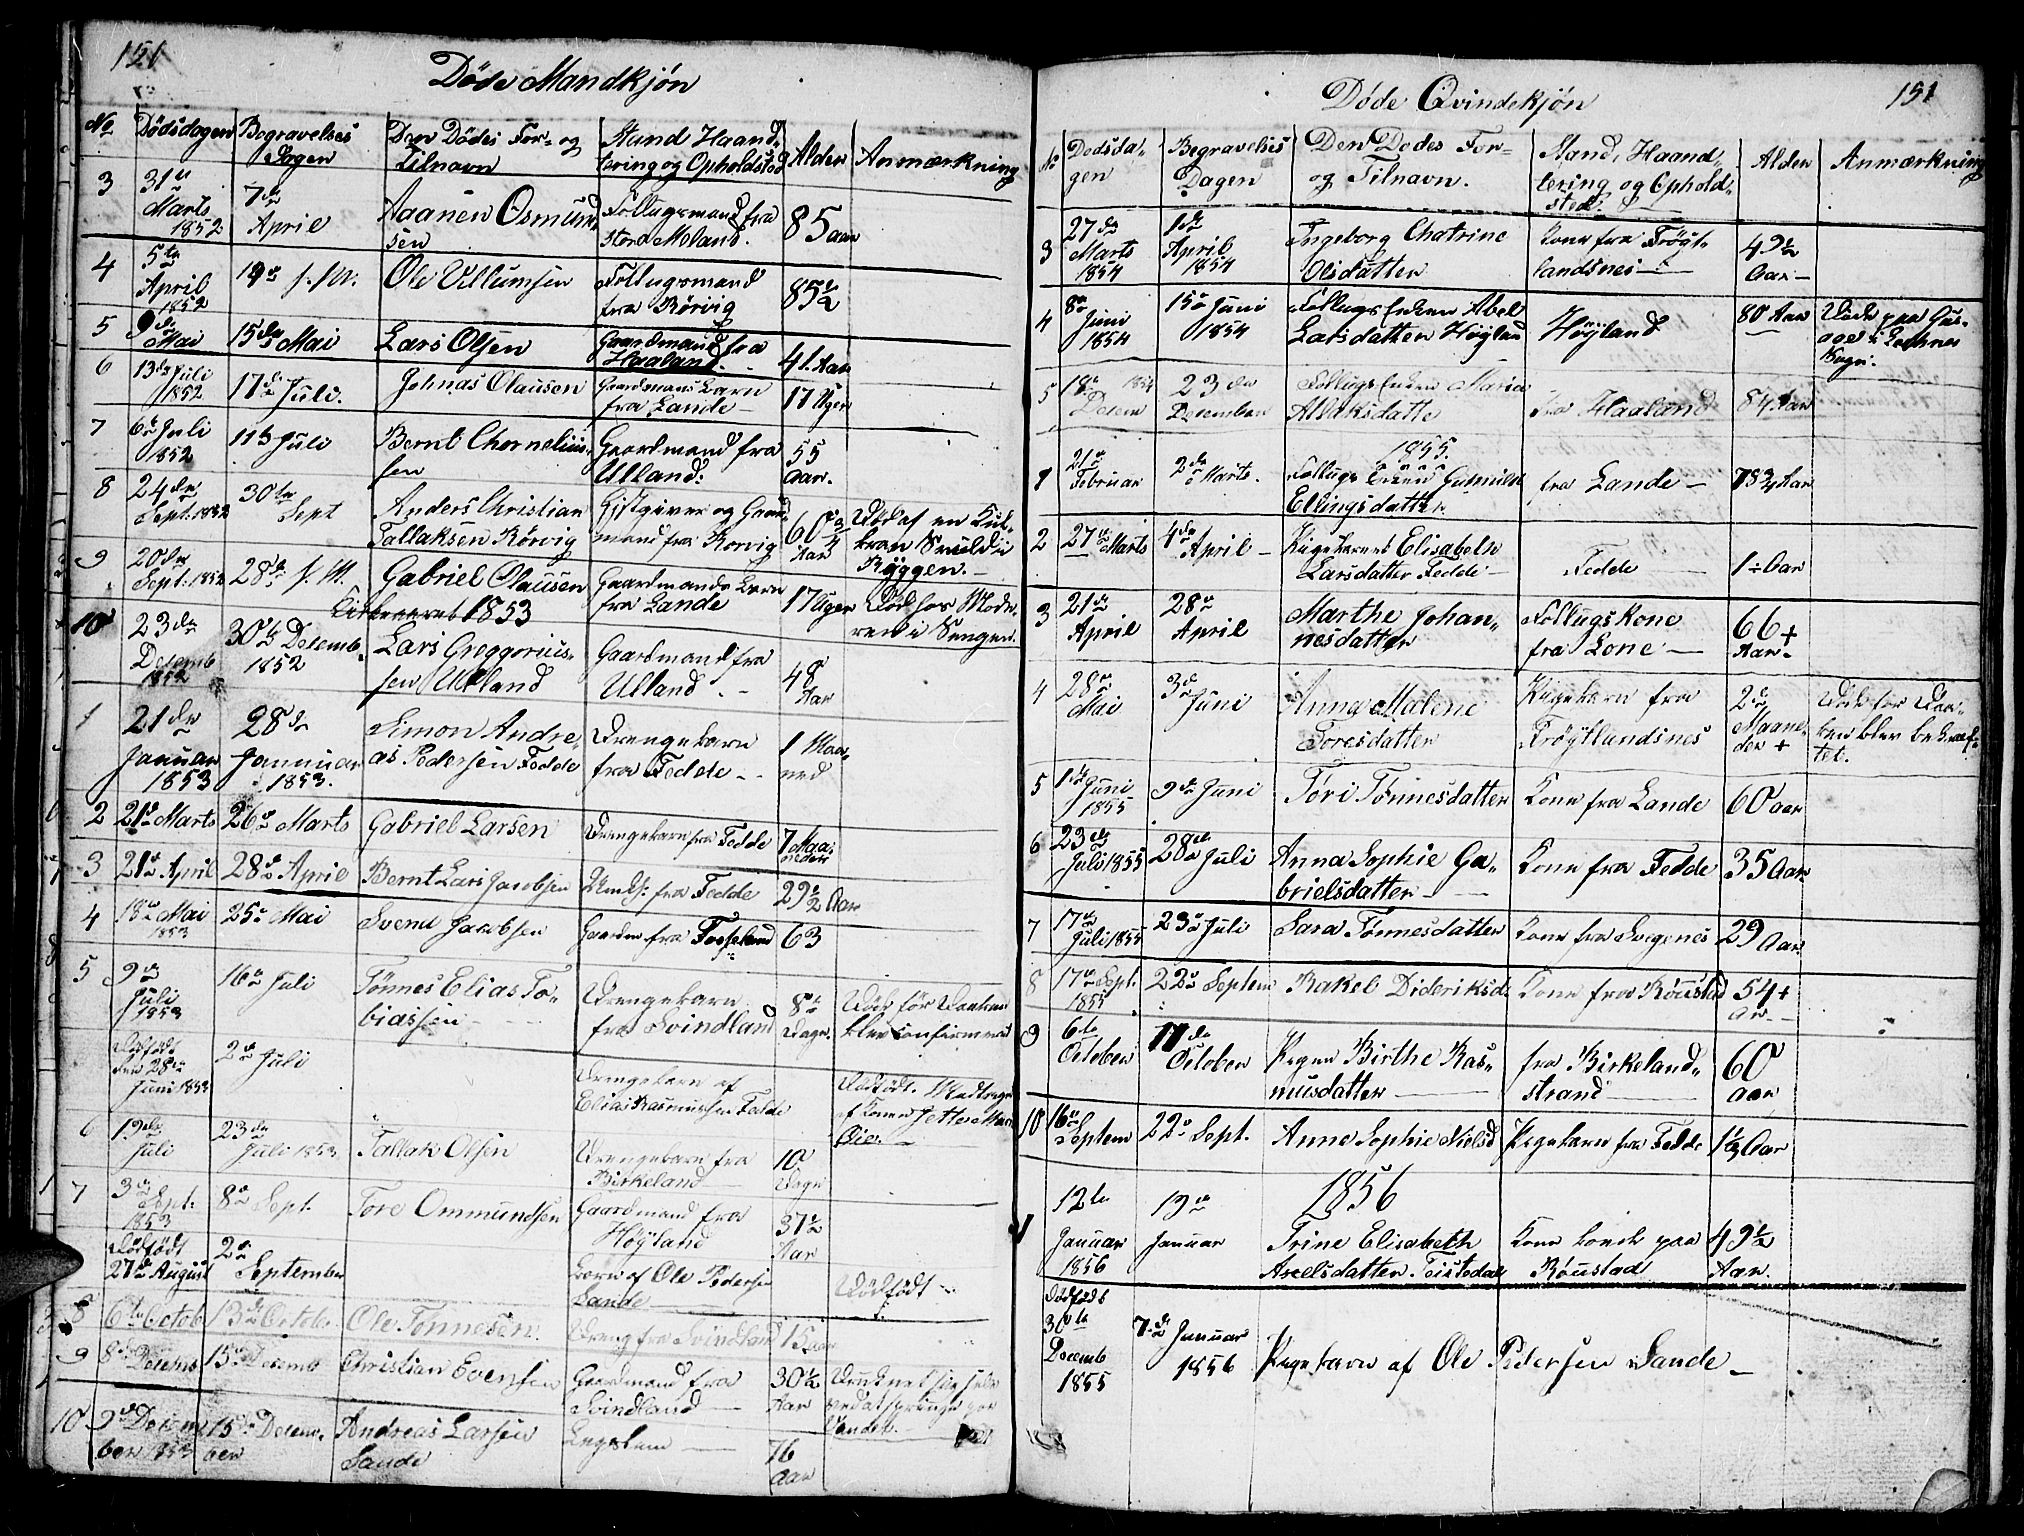 151
Døde Mandkjøn
No Dødsdagen Begravelses Dagen Den Dødes For- og Tilnavn Stand Haandtering og Opholdsted Alder Anmærkning
3 31te Marts 1852 7de April Aanen Osmundsen Follugsmand fra Store Meland. 85 aar
4 5te April 1852 Ole Villumsen Follugsmand fra Rørvig 85½
5 9de Mai 15de Mai Lars Olsen Gaardmand fra Haaland. 41. Aar
6 13de Juli 1852 17de Juli. Johnas Olausen Gaardmans Barn fra Lande 17 Uger
7 6te Juli 1852 11te Juli Bernt Chorneliussen Gaardmand fra Ulland. 55 Aar.
8 24de Sept. 1852 30te Sept Anders Christian Tallaksen Rørvig Giftgiver og Gaardmand fra Rørvig 60¾ Aar Død af en i Ryggen.
9 20de Sept. 1852 28de Gabriel Olausen Gaardmands Barn fra Lande 17 Uger Død hos Moderen i Sengen.
Kirkeaaret 1853
10 23de Decemb 1852 30te Decemb. 1852 Lars Greggoriussen Ulland Gaardmand fra Ulland. 48 Aar
1 21de Januar 1853 28de Januar 1853. Simon Andreas Pedersen Fedde Drengebarn fra Fedde 1 Maaned
2 21de Marts 26de Marts Gabriel Larsen Drengebarn fra Fedde 7 Maaneder
3 21de April 28de April Bernt Lars Jacobsen fra Fedde 29½ Aar
4 18de Mai 1853 25de Mai Svend Jacobsen Gaardm fra Fosseland 63
5 9de Juli 1853 16de Juli Tønnes Elias Tobiassen Drengebarn fra Svindland 8te Dage. Død før Daaben blev Confirmeret
Dødfødt den 28de Juni 1853 2de Juli Drengebarn af Elias Rasmussen Fedde Dødfødt.
6 19de Juli 23de Juli 1853 Tallak Olsen Drengebarn fra Birkeland 10 Dage
7 3de Sept. 1853 8de Sept. Tore Ommundsen Gaardmand fra Høyland 37½ Aar
Dødfødt 27de August 2de September Barn af Ole Pedersen Sande Dødfødt
8 6te Octob 13de Octob. Ole Tønnesen. Dreng fra Svindland 15 aar
9 8de Decemb 15de Decemb Christian Evensen Gaardmand fra Svindland 30½ Aar Druknet sig selv ved at springe paa Vandet.
10 9de December 1853 15de December Andreas Larsen Sande Legslem 76 Aar
Døde Qvindekjøn
151
No Dødsdagen Begravelses Dagen Den Dødes For- og Tilnavn. Stand, Haandtering og Opholdsted. Alder Anmærkning
3 27de Marts 1854 1de April 1854 Ingeborg Chatrine Olsdatter Kone fra Frøytlandsnes 49½ Aar
4 8de Juni 1854 15de Juni 1854 Follugs Enken Abel Larsdatter Høyland Høyland 80 Aar Døde paa
5 18de 1854 Decem 23de December Follugs Enken Maria Aslaksdatte fra Haaland 84 Aar
1855.
1 21de Februar 2de Marts. Follugs Gunnild Ellingsdatter fra Lande 78¾ Aar
2 27de Marts 4de April Pigebarnet Elisabeth Larsdatter Fedde Fedde 1 Aar
3 21de April 28de April Marthe Johannesdatter Follugskone fra Lone 66+ Aar
4 28de Mai 3de Juni Anna Malene Toresdatter Pigebarn fra Frøytlandsnes 2de Maaneder + Død før Daaben blev bekræftet.
5 1de Juni 1855 9de Juni Tøri Tønnesdatter Kone fra Lande 60 Aar
6 23de Juli 1855 28de Juli Anna Sophie Gabrielsdatter Kone fra Fedde 35 Aar
7 17de Juli 1855 23de Juli Sara Tønnesdatter Kone fra Svegenes 29 Aar
8 17de Sept. 1855 22de Septem Rakel Dideriksd. Kone fra Røiistad 54+ Aar
9 6te October 11de October Pigen Birthe Rasmusdatter fra Birkelandstrand 60 Aar
10 16de Septem 22de Sept. Anne Sophie Nielsd Pigebarn fra Fedde 1½ Aar
1856
12te Januar 1856 19de Januar Trine Elisabeth Axelsdatter Teistedal Kone boende paa Røiistad 49½ Aar.
Dødfødt 30te Decemb 1855 7de Januar 1856 Pigebarn af Ole Pedersen Sande